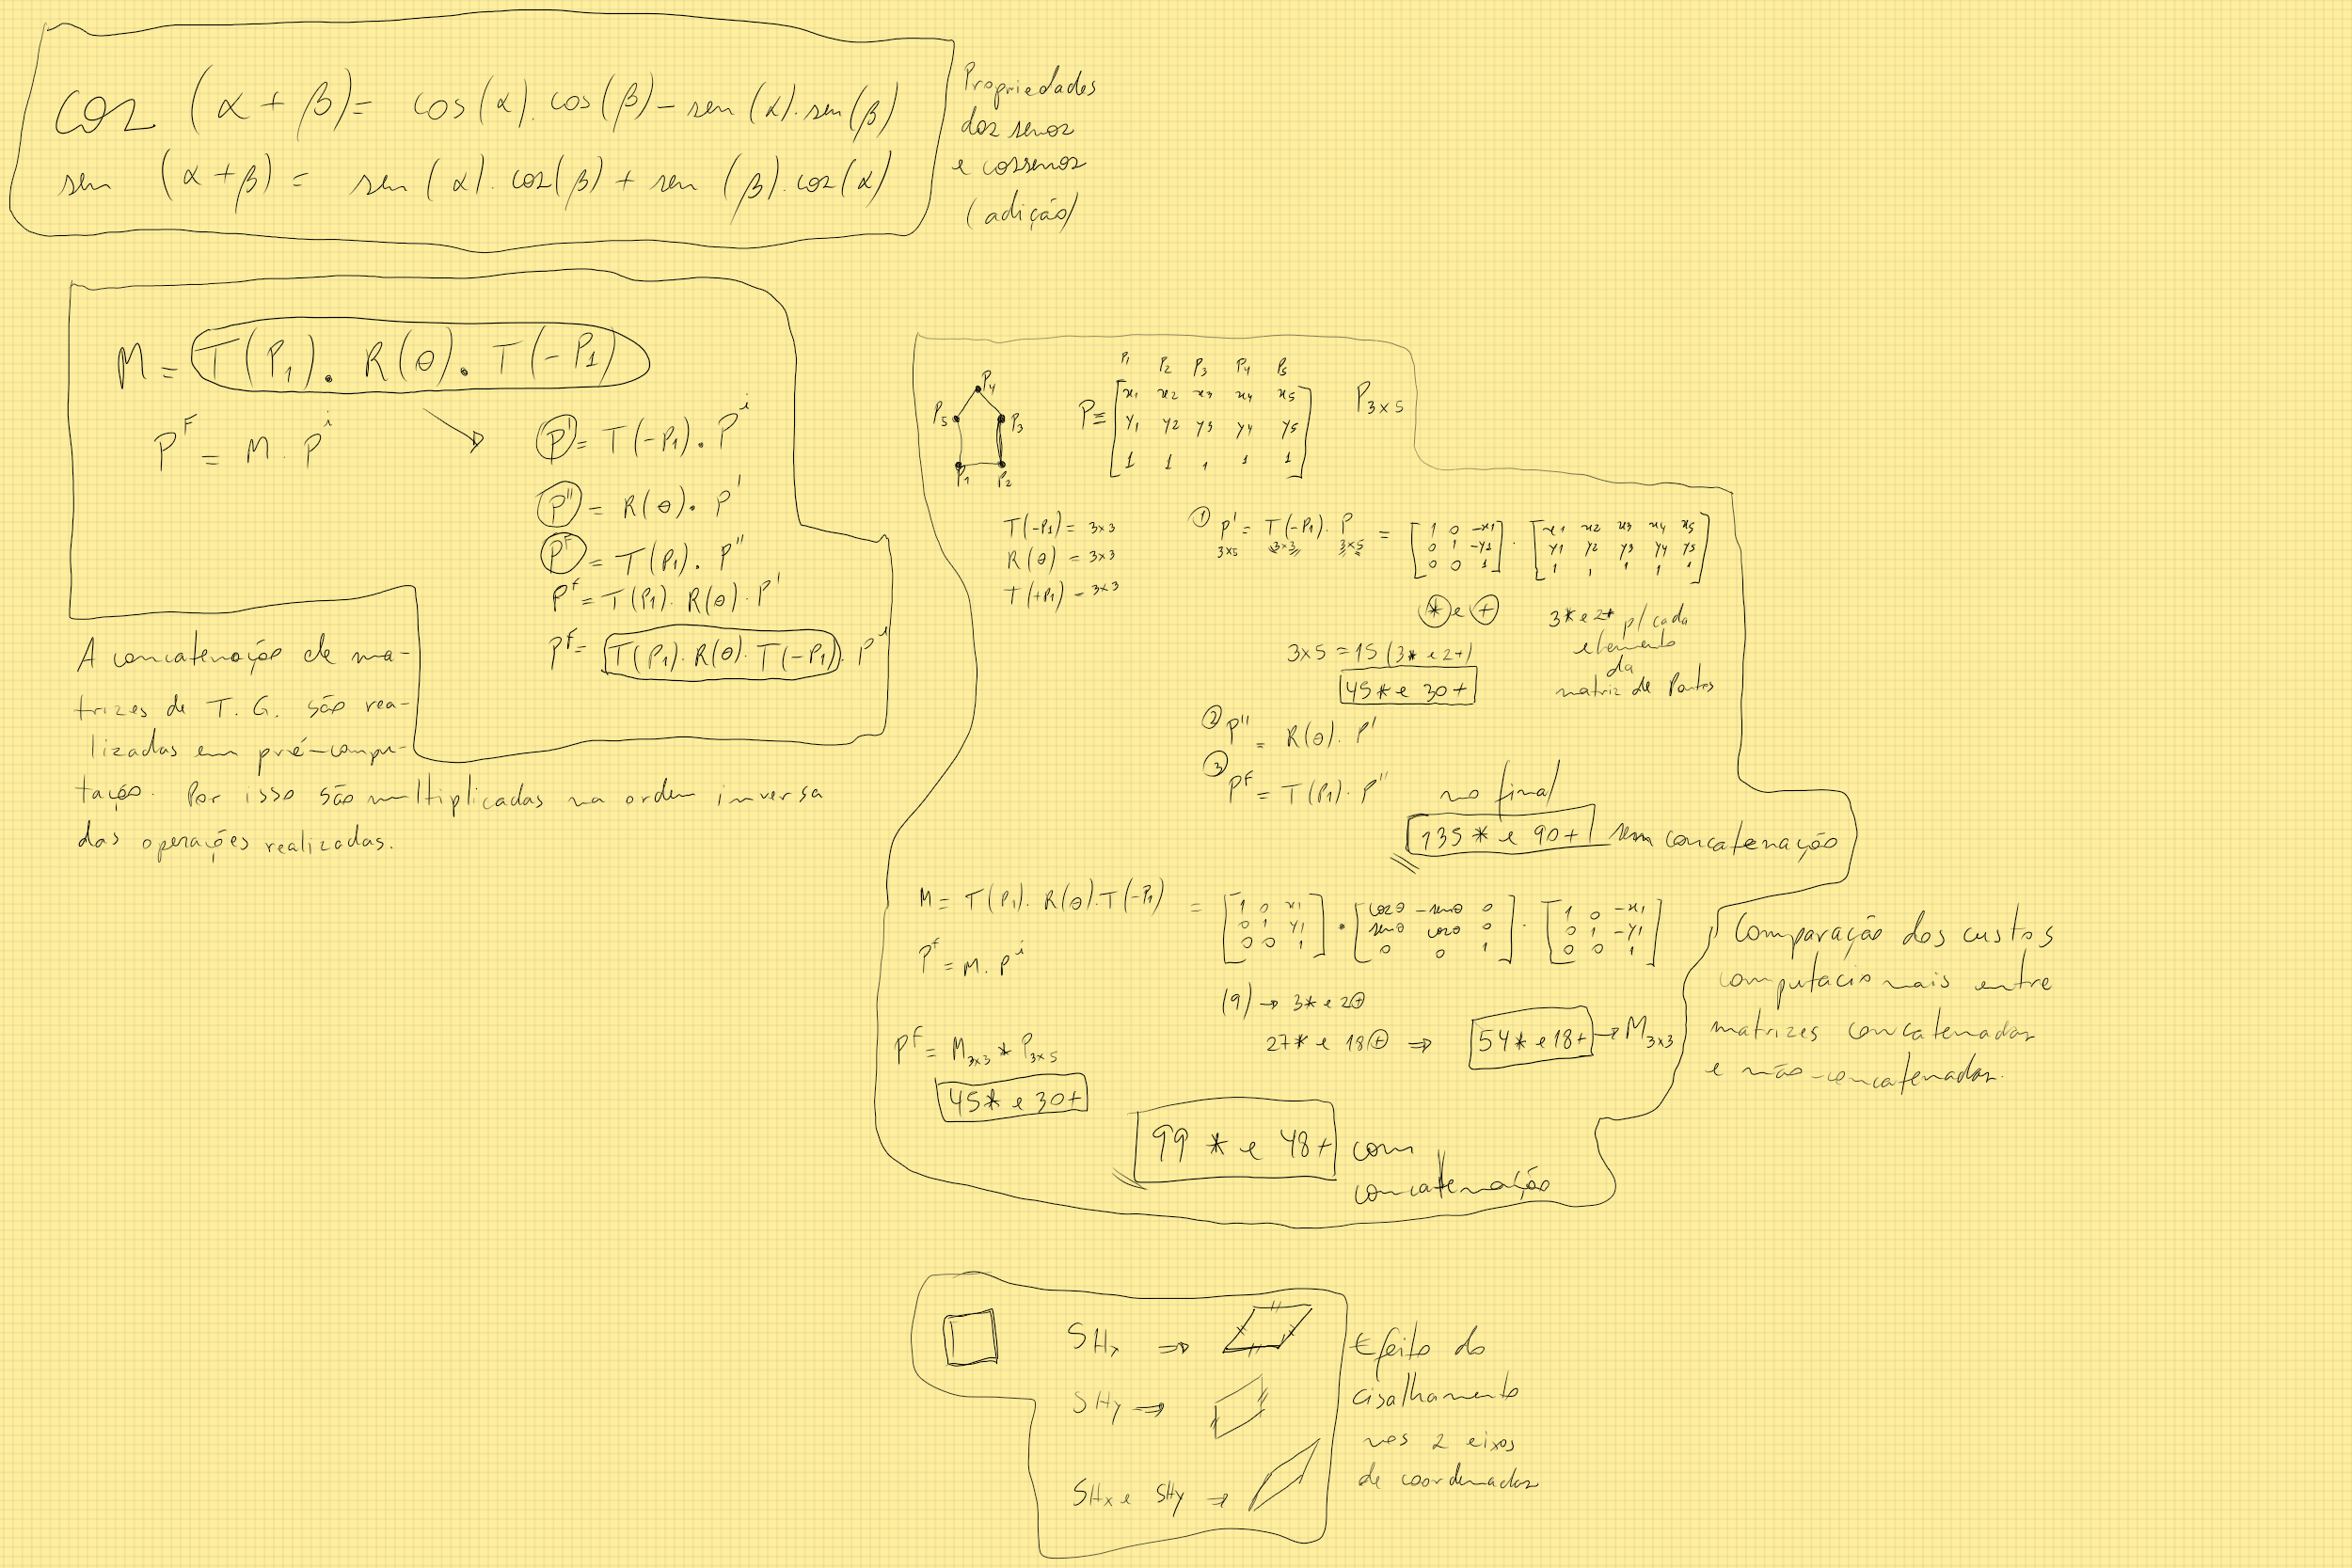 cos (α + β) = cos(α). cos(β) – sen(α). sen(β)
sen (α + β) = sen(α). cos(β) + sen(β). cos(α)
Propriedades
dos senos
e cossenos
(adição)
M = T(P₁). R(θ). T(-P₁)
P^F = M. P^i
P' = T(-P₁). P^i
P'' = R(θ). P'
P^F = T(P₁). P''
P^f = T(P₁). R(θ). P'
P^F = T(P₁). R(θ). T(-P₁). P^i
A concatenação de ma-
trizes de T. G. são rea-
lizadas em pré-compu-
tação. Por isso são multiplicadas na ordem inversa
das operações realizadas.
P₄
P₅ P₃
P₁ P₂
P₁ P₂ P₃ P₄ P₅
P = [x₁ x₂ x₃ x₄ x₅
y₁ y₂ y₃ y₄ y₅
1 1 1 1 1]
P₃ₓ₅
T(-P₁) = 3x3
R(θ) = 3x3
T(+P₁) = 3x3
① P' = T(-P₁). P = [1 0 -x₁ . [x₁ x₂ x₃ x₄ x₅
3x5 3x3 3x5 0 1 -y₁ y₁ y₂ y₃ y₄ y₅
0 0 1] 1 1 1 1 1]
* e +
3* e 2+ p/ cada
elemento
da
matriz de Pontos
3x5 = 15 (3* e 2+)
45* e 30+
② P'' = R(θ). P'
③ P^F = T(P₁). P''
no final
135 * e 90+ sem concatenação
M = T(P₁). R(θ). T(-P₁) = [1 0 x₁ . [cosθ -senθ 0 . [1 0 -x₁
0 1 y₁ senθ cosθ 0 0 1 -y₁
0 0 1] 0 0 1] 0 0 1]
P^f = M. P^i
(9) → 3* e 2+
27* e 18+ ⇒ 54* e 18+ → M₃ₓ₃
P^F = M₃ₓ₃ * P₃ₓ₅
45* e 30+
99 * e 48+ com
concatenação
Comparação dos custos
computacionais entre
matrizes concatenadas
e não-concatenadas.
SHx ⇒
SHy ⇒
SHx e SHy ⇒
Efeito do
cisalhamento
nos 2 eixos
de coordenadas